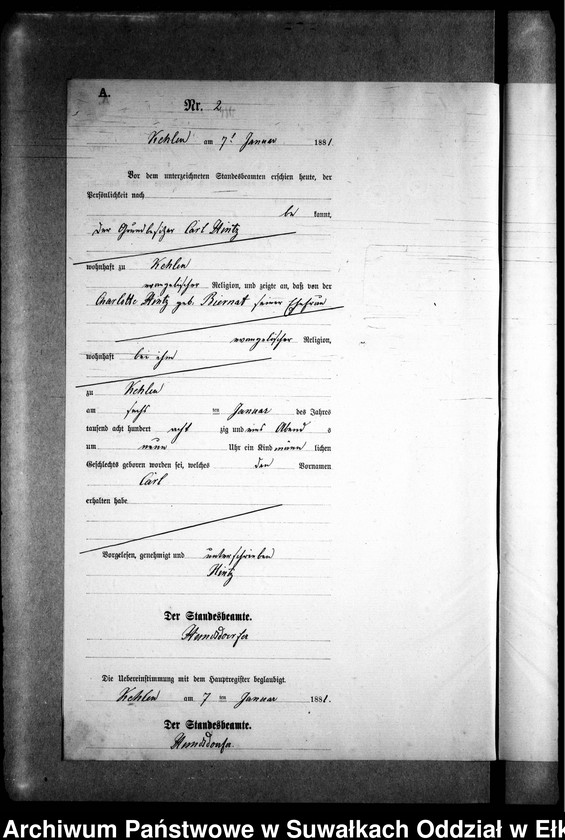 A.
Nr. 2
Kehlen am 7ᵗ Januar 1881.
Vor dem unterzeichneten Standesbeamten erschien heute, der
Persönlichkeit nach
be kannt,
der Grundbesitzer Carl Hintz
wohnhaft zu Kehlen
evangelischer Religion, und zeigte an, daß von der
Charlotte Hintz geb. Biernat seiner Ehefrau
evangelischer Religion,
wohnhaft bei ihm
zu Kehlen
am sechs ten Januar des Jahres
tausend acht hundert acht zig und eins Abend s
um neun Uhr ein Kind männ lichen
Geschlechts geboren worden sei, welches den Vornamen
Carl
erhalten habe
Vorgelesen, genehmigt und unterschrieben
Hintz
Der Standesbeamte.
Die Uebereinstimmung mit dem Hauptregister beglaubigt.
Kehlen am 7 ten Januar 1881.
Der Standesbeamte.
Archiwum Państwowe w Suwałkach Oddział w Ełk